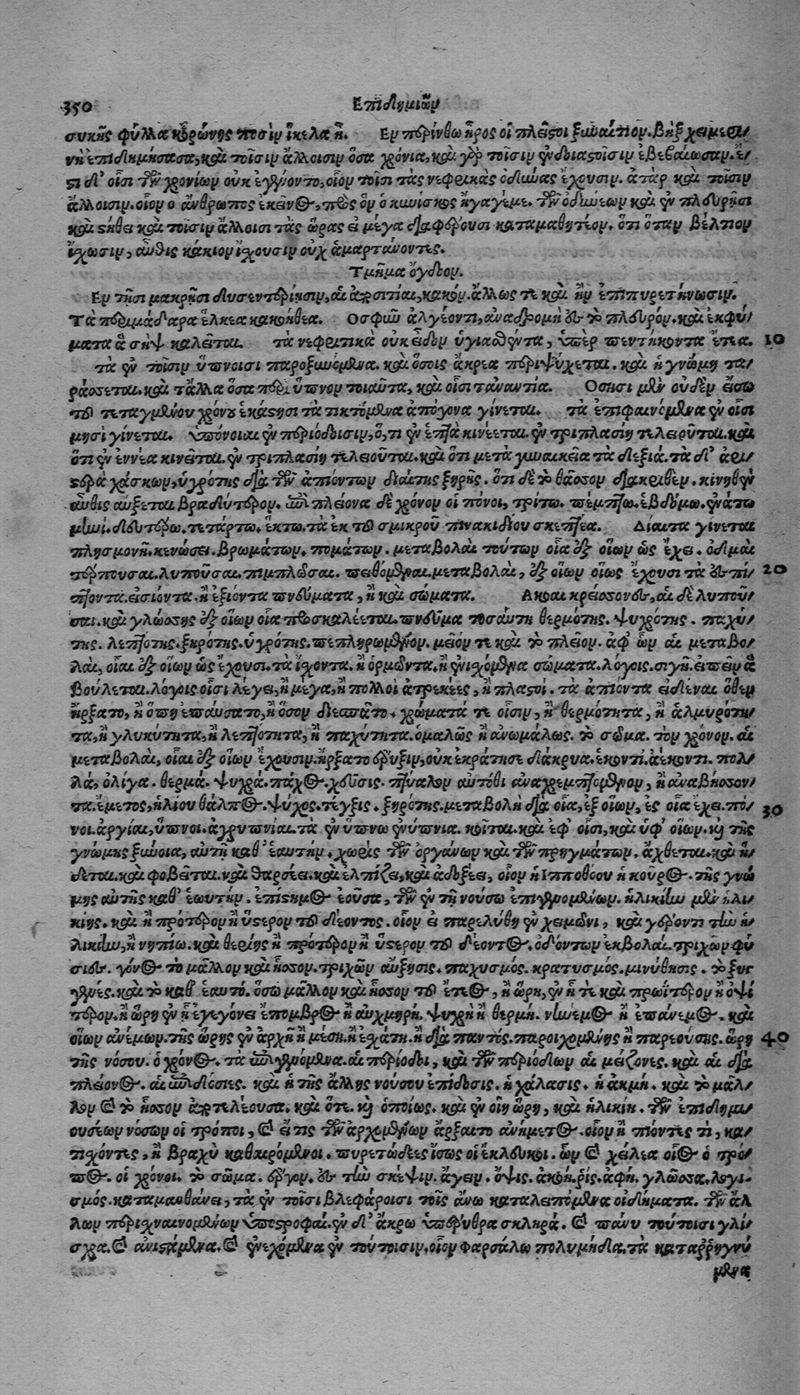 350 Ἐπιδημιῶν
συκῆς φύλλα κορώνης ποσὶν ἴκελα ἢ. Ἐν πέρινθω ἦρος οἱ πλεῖστοι ξυναίτιον. βὴξ χειμερι/
νὴ ἐπιδημήσασα, καὶ τοῖσιν ἄλλοισιν ὅσα χρόνια, καὶ γὰρ τοῖσιν ἐνδοιαστοῖσιν ἐβεβαίωσαν. ἔ/
στι δ' οἷσι τῶν χρονίων οὐκ ἐγένοντο, οἷον τοῖσι τὰς νεφριτικὰς ὀδύνας ἔχουσιν. ἀτὰρ καὶ τοῖσιν
ἄλλοισιν. οἷον ὁ ἄνθρωπος ἐκεῖνος, πρὸς ὃν ὁ κυνίσκος ἤγαγέ με. τῶν ὀδυνέων καὶ ἐν πλευρῇσι
καὶ στήθει καὶ τοῖσιν ἄλλοισι τὰς ὥρας εἰ μέγα διαφέρουσι καταμαθητέον. ὅτι ὅταν βέλτιον
ἴσχωσιν, αὖθις κάκιον ἴσχουσιν οὐχ ἁμαρτάνοντες.
Τμῆμα ὄγδοον.
Ἐν τῇσι μακρῇσι δυσεντερίῃσιν, αἱ ἀποσιτίαι, κακόν. ἄλλως τε καὶ ἢν ἐπιπυρετήνωσιν.
Τὰ περιμάδαρα ἕλκεα κακοήθεα. Ὀσφὺν ἀλγέοντι, ἀναδρομὴ ἐς τὸ πλευρόν. καὶ ἐκφύ/
ματα ἃ σὴψ καλεῖται. τὰ νεφριτικὰ οὐκ εἶδον ὑγιασθέντα, ὑπὲρ πεντήκοντα ἔτεα. 10
τὰ ἐν τοῖσιν ὕπνοισι παροξυνόμενα. καὶ ὅσοις ἄκρεα περιψύχεται. καὶ ἡ γνώμη τα/
ράσσεται. καὶ τἄλλα ὅσα περὶ ὕπνον τοιαῦτα, καὶ οἷσι τἀναντία. Ὅσῃσι μὲν οὐδὲν εἴσω
τοῦ τεταγμένου χρόνου ἑκάστῃσι τὰ τικτόμενα ἀπόγονα γίνεται. τὰ ἐπιφαινόμενα ἐν οἷσι
μησὶ γίνεται. ὑπόνοιαι ἐν περιόδοισιν, ὅ, τι ἐν ἑπτὰ κινέεται. ἐν τριπλασίῃ τελειοῦται. καὶ
ὅτι ἐν ἐννέα κινεῖται. ἐν τριπλασίῃ τελειοῦται. καὶ ὅτι μετὰ γυναικεῖα τὰ δεξιὰ. τὰ δ' ἀρι/
στερὰ χάσκων, ὑγρότης διὰ τῶν ἀπιόντων διαίτης ξηρῆς. ὅτι δὲ τὸ θᾶσσον διακριθὲν. κινηθὲν
αὖθις αὔξεται βραδύτερον. ἐπὶ πλείονα δὲ χρόνον οἱ πόνοι, τρίτῳ. πέμπτῳ. ἑβδόμῳ. ἐνάτῳ
μηνί. δευτέρῳ. τετάρτῳ. ἕκτῳ. τὰ ἐκ τοῦ σμικροῦ πινακιδίου σκεπτέα. Δίαιτα γίνεται
πλησμονῇ. κενώσει. βρωμάτων. πομάτων. μεταβολαὶ τούτων οἷα ἐξ οἵων ὡς ἔχει. ὀδμαὶ
τέρπουσαι. λυποῦσαι. πιμπλῶσαι. πειθόμεναι. μεταβολαὶ, ἐξ οἵων οἵως ἔχουσι τὰ ἐσπί/ 20
πτοντα. ἐσιόντα. ἢ ἐξιόντα πνεύματα, ἢ καὶ σώματα. Ἀκοαὶ κρείσσονες, αἱ δὲ λυποῦ/
σαι. καὶ γλώσσης ἐξ οἵων οἷα προσκαλέεται. πνεῦμα τοσαύτη θερμότης. ψυχρότης. παχύ/
της. λεπτότης. ξηρότης. ὑγρότης. πεπληρωμένον. μεῖόν τε καὶ τὸ πλεῖον. ἀφ' ὧν αἱ μεταβο/
λαὶ, οἷαι ἐξ οἵων ὡς ἔχουσι. τὰ ἴσχοντα. ἢ ὁρμῶντα. ἢ ἐνισχόμενα σώματα. λόγοις. σιγή. εἰπεῖν ἃ
βούλεται. λόγοις οἷσι λέγει, ἢ μέγα, ἢ πολλοὶ ἀτρεκέες, ἢ πλαστοί. τὰ ἀπιόντα εἰδέναι ὅθεν
ἤρξατο, ἢ ὅπῃ ἐπαύσατο, ἢ ὅσον διεσπᾶτο. χρώματά τε οἷσιν, ἢ θερμότητα, ἢ ἁλμυρότη/
τα, ἢ γλυκύτητα, ἢ λεπτότητα, ἢ παχυτητα. ὁμαλῶς ἢ ἀνωμάλως. τὸ σῶμα. τὸν χρόνον. αἱ
μεταβολαὶ, οἷαι ἐξ οἵων ἔχουσιν. ἤρξατο ἔρυξιν, οὐκ ἐκράτησε δάκρυα. ἑκοντὶ. ἀέκοντι. πολ/
λὰ, ὀλίγα. θερμά. ψυχρά. πάχος. χεῦσις. πτύαλον αὐτόθι ἀναχρεμπτόμενον, ἢ ἀναβήσσον/
τα. ἔμετος, ἡλίου θάλπος. ψῦχος. τέγξις. ξηρότης. μεταβολὴ διὰ οἷα, ἐξ οἵων, ἐς οἷα ἔχει. πό/ 30
νοι. ἀργίαι, ὕπνοι. ἀγρυπνίαι. τὰ ἐν ὕπνῳ ἐνύπνια. κοῖται. καὶ ἐφ' οἷσι, καὶ ὑφ' οἵων. καὶ τῆς
γνώμης ξύννοια, αὐτὴ καθ' ἑαυτὴν. χωρὶς τῶν ὀργάνων καὶ τῶν πρηγμάτων. ἄχθεται. καὶ ἥ/
δεται. καὶ φοβεῖται. καὶ θαρσέει. καὶ ἐλπίζει, καὶ ἀδοξέει, οἷον ἡ Ἱπποθόου ἡ κοῦρος. τῆς γνώ
μης αὐτῆς καθ' ἑωυτὴν. ἐπίστημος ἐοῦσα, τῶν ἐν τῇ νούσῳ ἐπιγενομένων. ἡλικίην μὲν ἡλι/
κίης. καὶ ἢ πρότερον ἢ ὕστερον τοῦ δέοντος. οἷον εἰ παρελύθη ἐν χειμῶνι, καὶ γέροντι τὴν ἡ/
λικίην, ἢ νηπίῳ. καὶ θερίης ἢ πρότερον ἢ ὕστερον τοῦ δέοντος. ὀδόντων ἐκβολαὶ. τριχῶν φύ
σιες. γόνος. τὸ μᾶλλον καὶ ἧσσον. τριχῶν αὔξησις. παχυσμός. κρατυσμός. μινύθησις. τὸ ξυγ
γενὲς. καὶ τὸ καθ' ἑαυτό. ὅσῳ μᾶλλον καὶ ἧσσον τοῦ ἔτεος, ἢ ὥρη, ἐν ᾗ τε καὶ πρωΐτερον ἢ ὀψί
τερον. ἢ ὥρη ἐν ᾗ γεγόνει ἔπομβρος ἢ αὐχμηρή. ψυχρὴ ἢ θερμὴ. νήνεμος ἢ ἐπάνεμος. καὶ
οἵων ἀνέμων. τῆς ὥρης ἐν ἀρχῇ ἢ μέσῃ. ἢ ἐσχάτῃ. ἢ διὰ παντός. παροιχομένης ἢ παρεούσης. ὥρη 40
τῆς νόσου. ὁ χρόνος. τὰ ἐπιγενόμενα. αἱ περίοδοι, καὶ τῶν περιόδων αἱ μείζονες. καὶ αἱ διὰ
πλείονος. αἱ ἐπιδόσιες. καὶ ἡ τῆς ἄλλης νούσου ἐπίδοσις. ἡ χάλασις. ἡ ἀκμή. καὶ τὸ μᾶλ/
λον καὶ τὸ ἧσσον ἀποτελέουσα. καὶ ὅτε. καὶ ὁποίως. καὶ ἐν οἵῃ ὥρῃ, καὶ ἡλικίῃ. τῶν ἐπιδημι/
ουσέων νόσων οἱ τρόποι, καὶ εἴ τις τῶν ἀρχομένων ἄρξαιτο ἀνήμετος. οἷον ἢ πιόντες τι, κα/
τισχόντες, ἢ βραχὺ καθαιρόμενοι. πυρετώδεες ἴσως οἱ ἔκλευκοι. ὧν καὶ χείλεα οἷος ὁ τρό/
πος. οἱ χρόνοι. τὸ σῶμα. ἔργον. ἐς τὴν σκέψιν. ἄγειν. ὄψις. ἀκοή. ῥίς. ἁφή. γλῶσσα. λογι/
σμός. καταμανθάνει, τὰ ἐν τοῖσι βλεφάροισι τοῖς ἄνω καταλειπόμενα οἰδήματα. τῶν ἄλ
λων περιισχναινομένων ὑποστροφαί. ἐν δ' ἄκρῳ ὑπέρυθρα σκληρά. καὶ πάνυ τούτοισι γλί/
σχρα. καὶ ἀνιστάμενα. καὶ ἐνεχόμενα ἐν τούτοισιν. οἷον Φαρσάλῳ πολυμήδεια. τὰ καταῤῥηγνύ
μενα